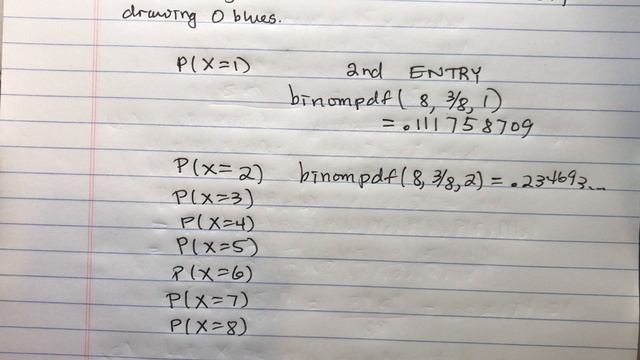 drawing 0 blues.
P(X=1) 2nd ENTRY
binompdf( 8, 3/8, 1)
= .111758709
P(X=2) binompdf(8, 3/8, 2) = .234693...
P(X=3)
P(X=4)
P(X=5)
P(X=6)
P(X=7)
P(X=8)